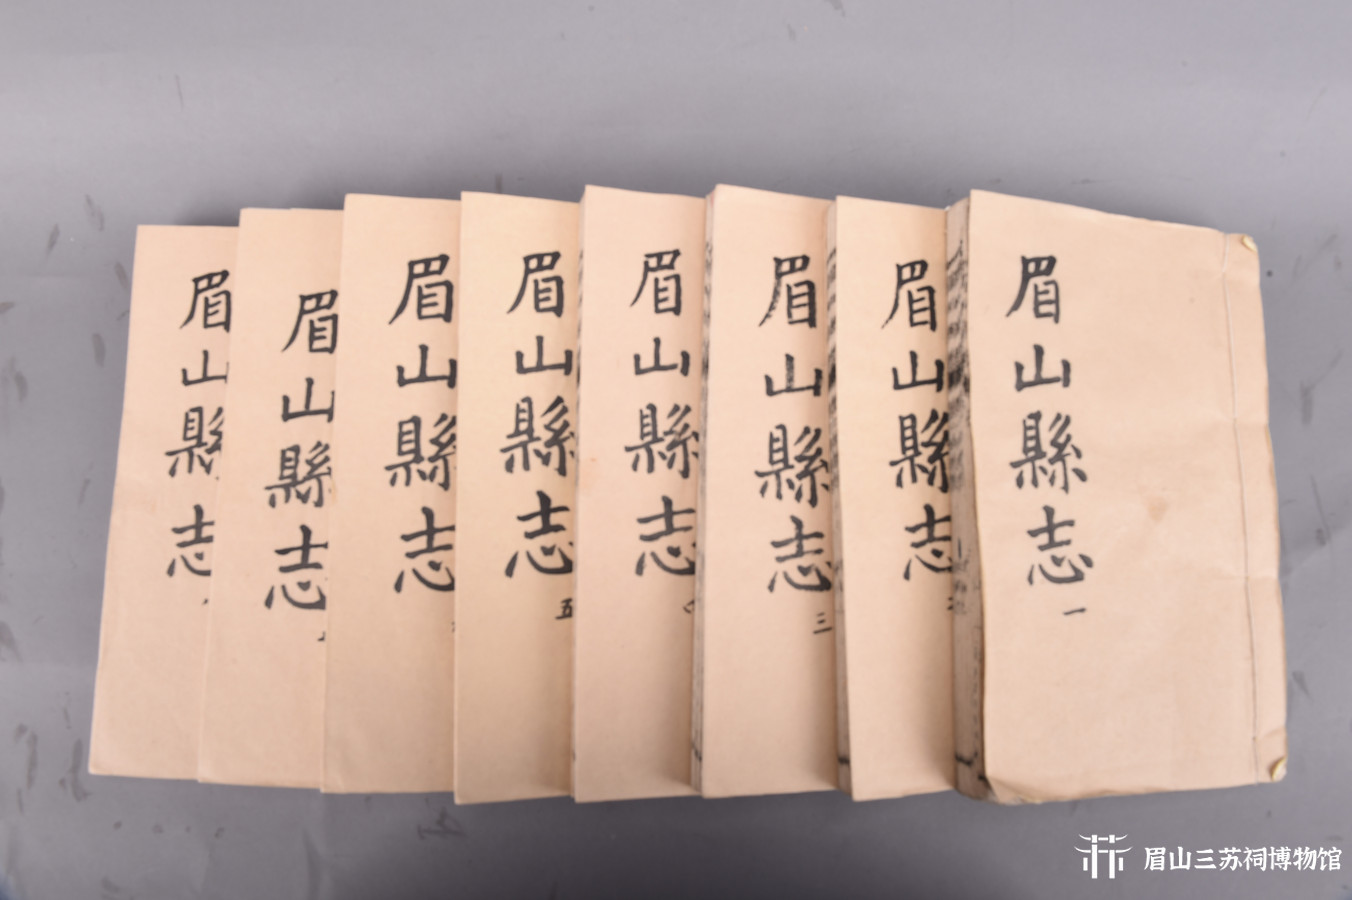 眉山縣志 一
眉山縣志
眉山縣志 三
眉山縣志
眉山縣志 五
眉山縣志
眉山縣志
眉山縣志
眉山三苏祠博物馆